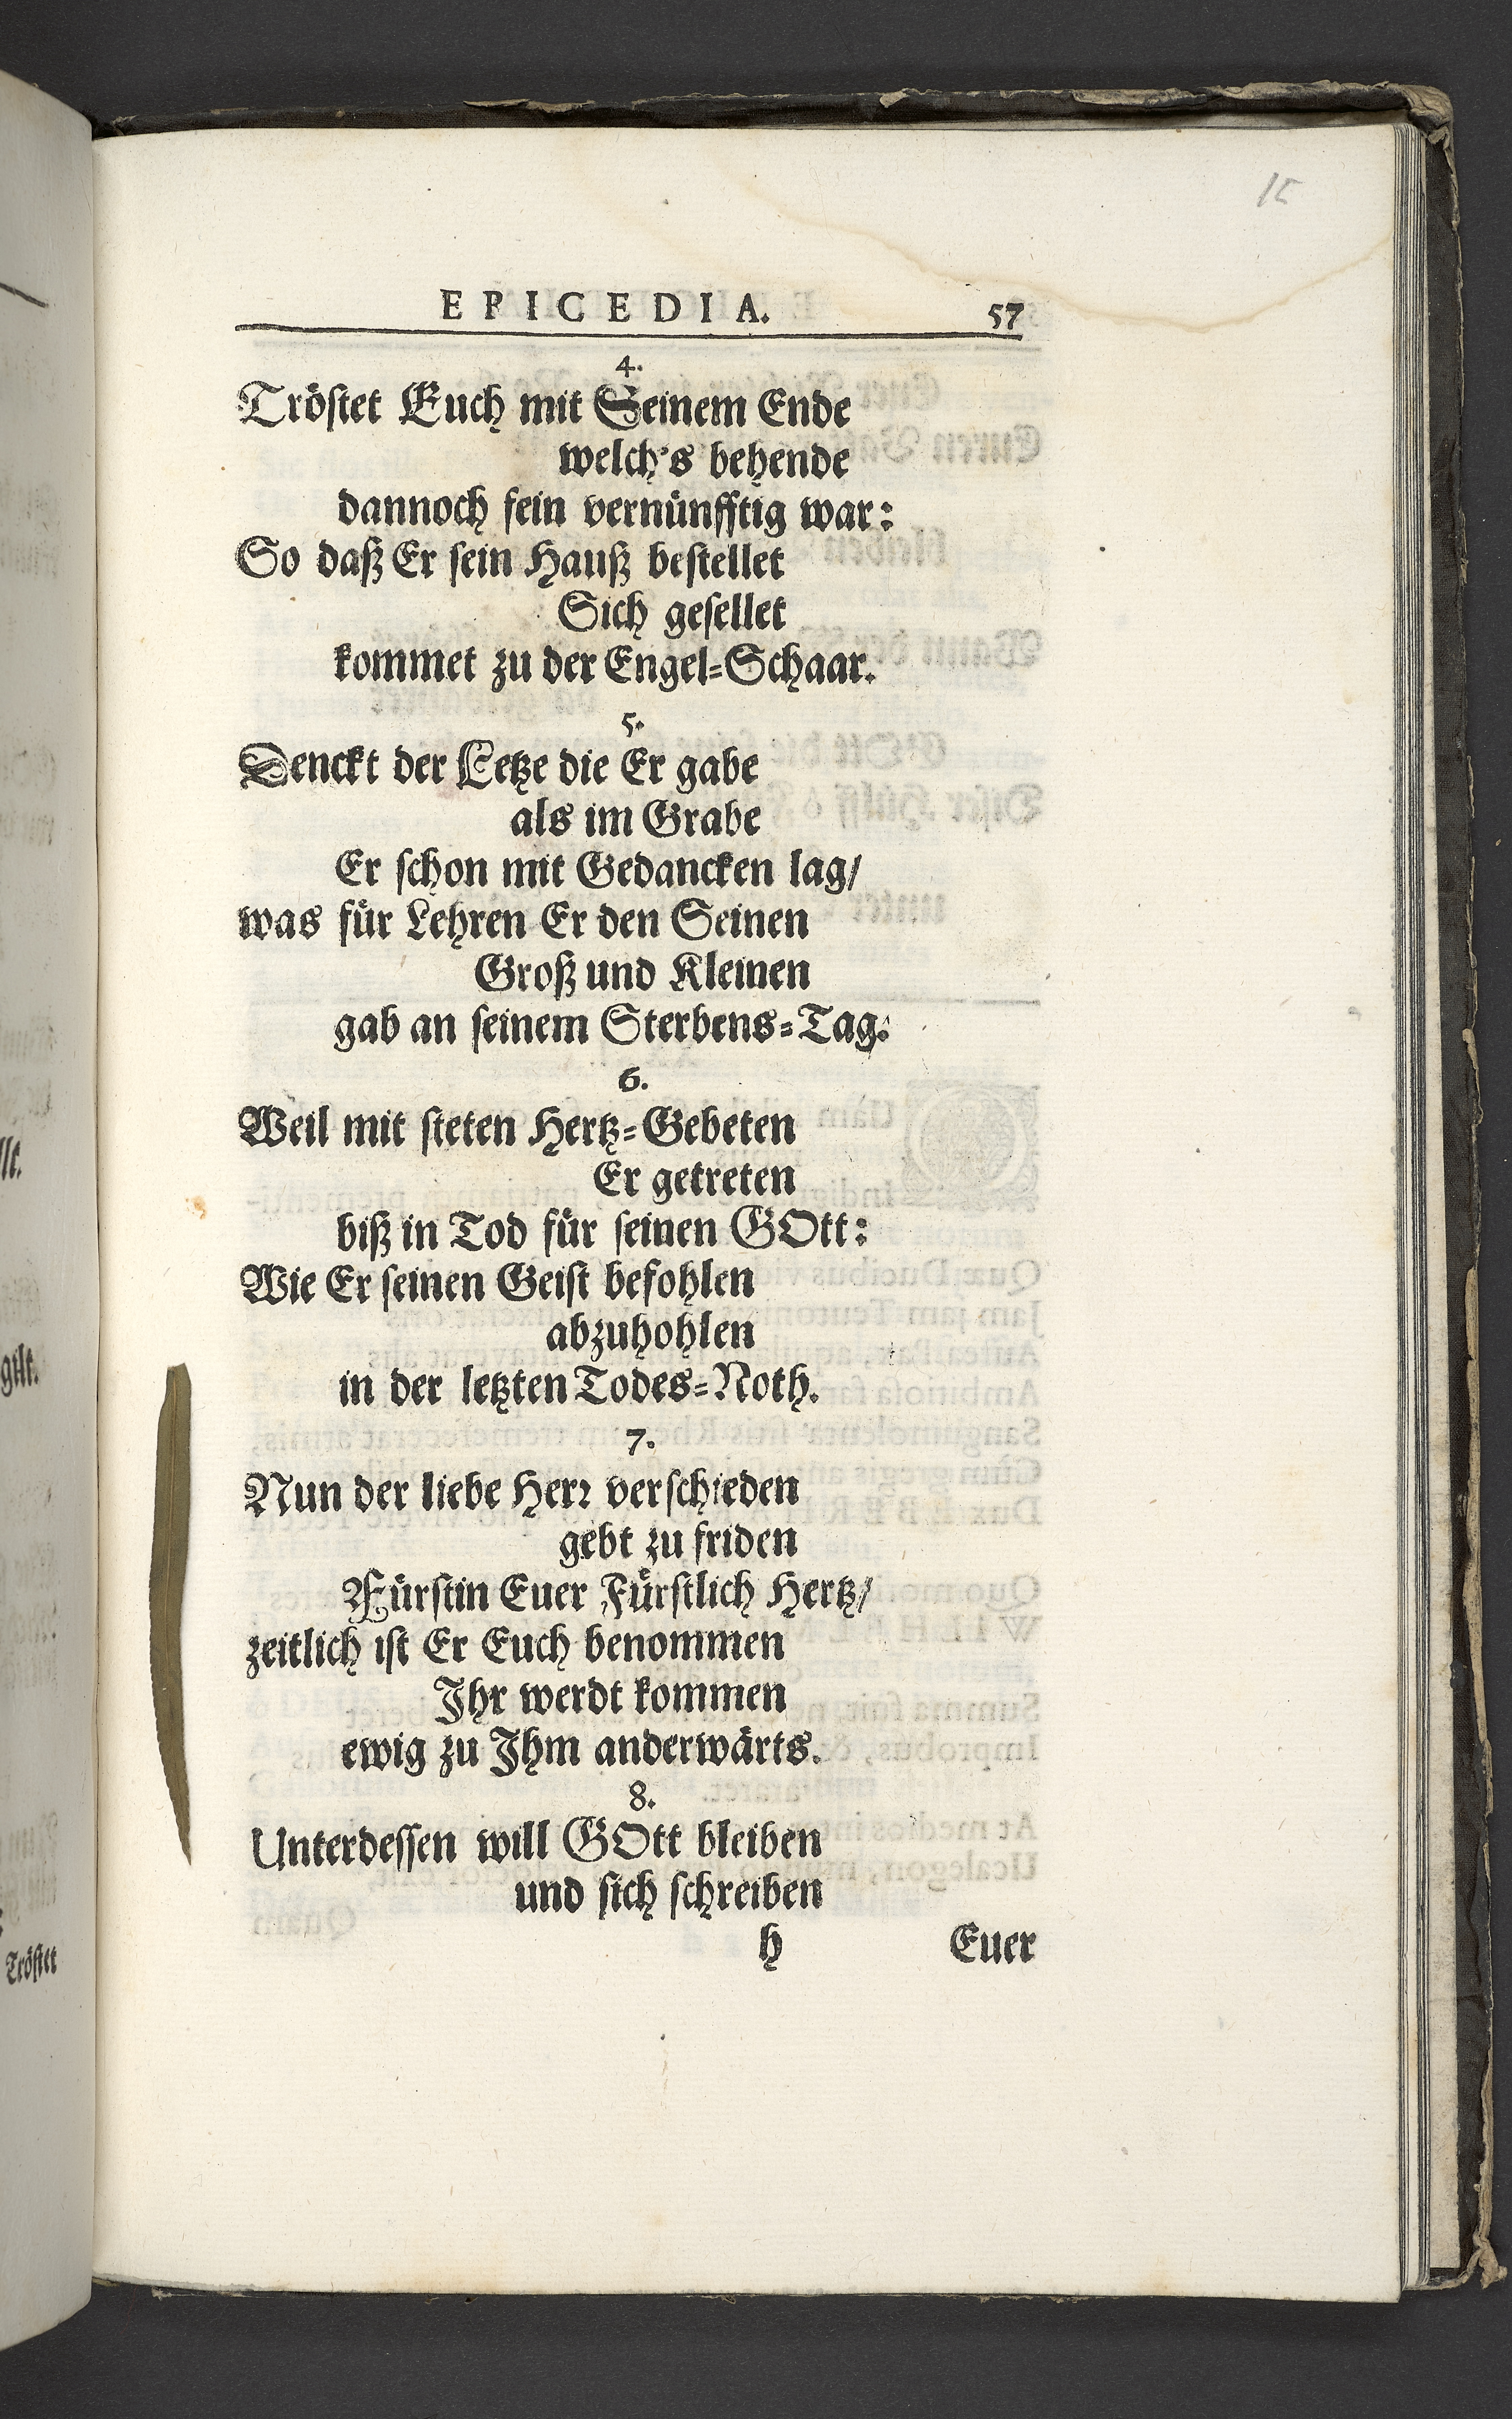 15
EPICEDIA. 57
4.
Tröstet Euch mit Seinem Ende
welch's behende
dannoch fein vernünfftig war:
So daß Er sein Hauß bestellet
Sich gesellet
kommet zu der Engel-Schaar.
5.
Denckt der Letze die Er gabe
als im Grabe
Er schon mit Gedancken lag/
was für Lehren Er den Seinen
Groß und Kleinen
gab an seinem Sterbens-Tag.
6.
Weil mit steten Hertz-Gebeten
Er getreten
biß in Tod für seinen GOtt:
Wie Er seinen Geist befohlen
abzuhohlen
in der letzten Todes-Noth.
7.
Nun der liebe Herr verschieden
gebt zu friden
Fürstin Euer Fürstlich Hertz/
zeitlich ist Er Euch benommen
Ihr werdt kommen
ewig zu Ihm anderwärts.
8.
Unterdessen will GOtt bleiben
und sich schreiben
h Euer
gilt.
Tröstet